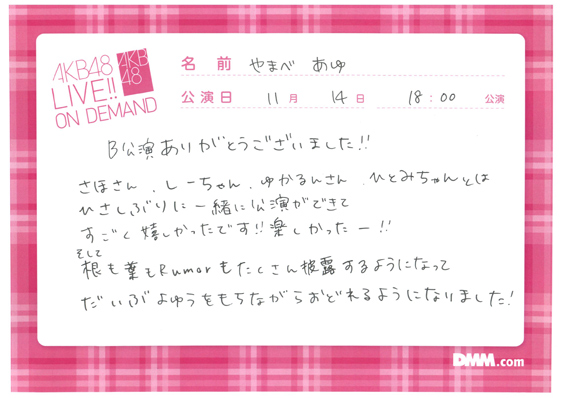 AKB48
LIVE!!
ON DEMAND
AKB
48
名前 やまべ あゆ
公演日 11月 14日 18:00 公演
B公演ありがとうございました!!
さほさん、しーちゃん、ゆかるんさん、ひとみちゃんとは
ひさしぶりに一緒に公演ができて
すごく嬉しかったです!!楽しかったー!!
そして
根も葉もRumorもたくさん披露するようになって
だいぶよゆうをもちながらおどれるようになりました!
DMM.com